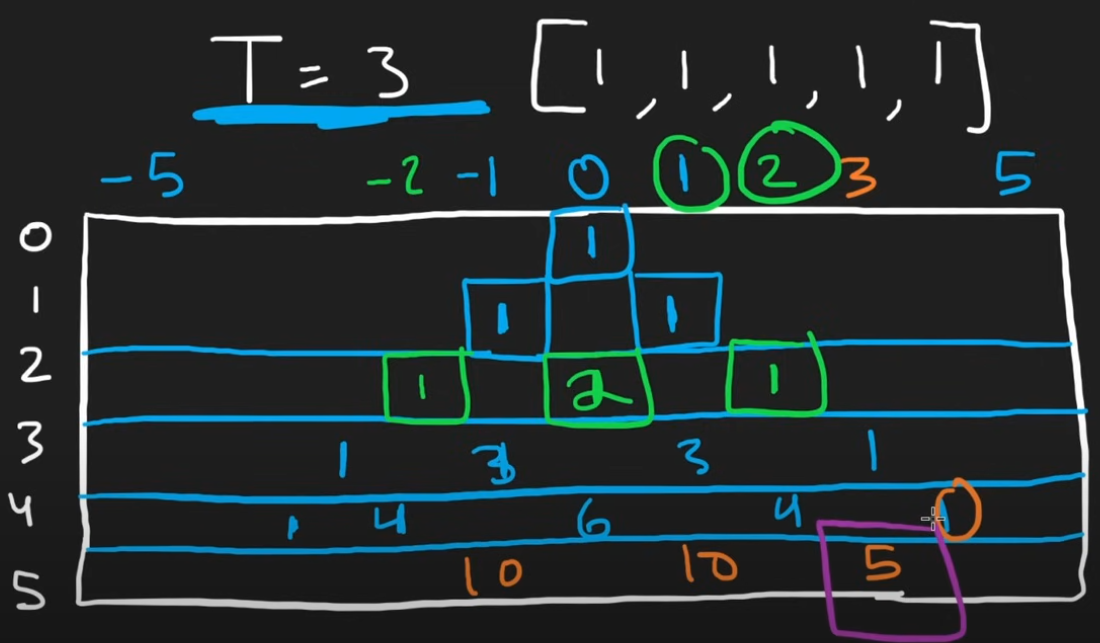 T = 3 [1, 1, 1, 1, 1]
-5 -2 -1 0 1 2 3 5
0 1
1 1 1
2 1 2 1
3 1 3 3 1
4 1 4 6 4 1
5 10 10 5